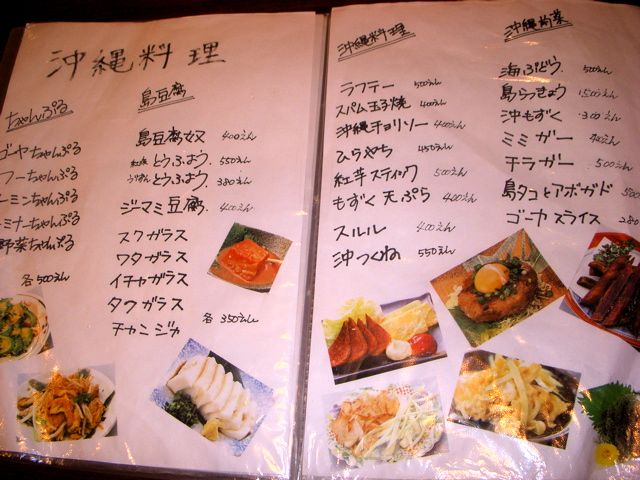 沖縄料理
ちゃんぷる
ゴーヤちゃんぷる
フーちゃんぷる
ーミンちゃんぷる
ーミナーちゃんぷる
野菜ちゃんぷる
各500えん
島豆腐
島豆腐奴 400えん
紅麹 とうふよう 550えん
とうふよう 380えん
ジマミ豆腐 400えん
スクガラス
ワタガラス
イチャガラス
タコガラス
チャンジャ 各350えん
沖縄料理
ラフテー 500えん
スパム玉子焼 400えん
沖縄チョリソー 400えん
ひらやち 450えん
紅芋スティック 500えん
もずく天ぷら 500えん
スルル 400えん
沖つくね 550えん
沖縄前菜
海ぶどう 500えん
島らっきょう 500えん
沖もずく 300えん
ミミガー 400えん
チラガー 500えん
島タコとアボガド 500
ゴーヤスライス 280